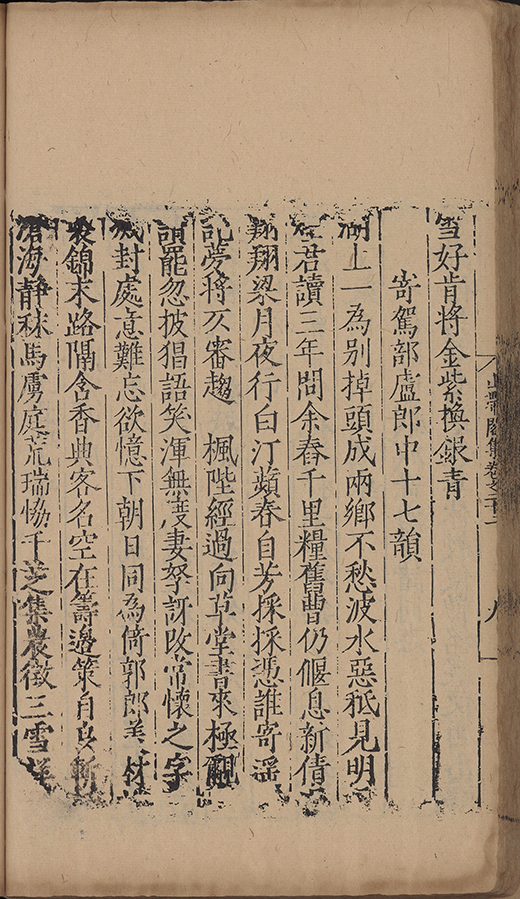 雪好肯將金紫換銀青
寄駕部盧郎中十七韻
湖上一為別掉頭成兩鄉不愁波水惡秖見明
君讀三年間余舂千里糧舊曹仍偃息新倩
翔翔梁月夜行白汀蘋春自芳採採憑誰寄遥
記夢將久審趨 楓陛經過向草堂書來極
謂罷忽披猖語笑渾無度妻孥訝改常懷之字
滅封處意難忘欲憶下朝日同為倚郭郎羙材
錦末路隔含香典客名空在籌邊策自良
滄海静秣馬虜庭荒瑞恊千芝集農徴三雪祥
卷之十二
八